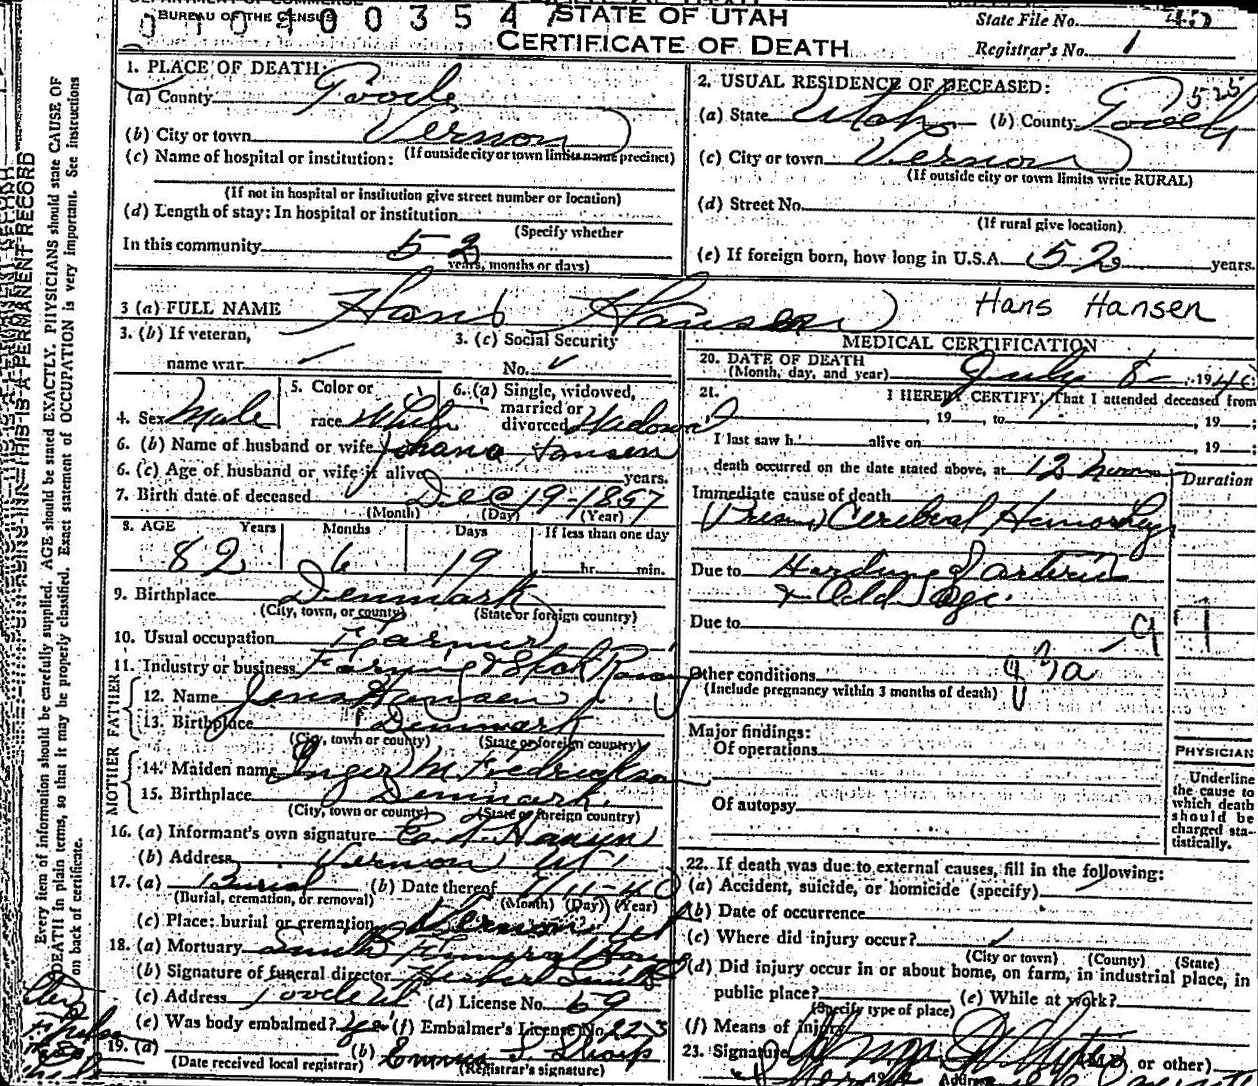 BUREAU OF THE CENSUS
STATE OF UTAH
CERTIFICATE OF DEATH
State File No.
Registrar's No. 1
1. PLACE OF DEATH:
(a) County Tooele
(b) City or town Vernon
(If outside city or town limits name precinct)
(c) Name of hospital or institution:
(If not in hospital or institution give street number or location)
(d) Length of stay: In hospital or institution
(Specify whether
In this community 52
years, months or days)
2. USUAL RESIDENCE OF DECEASED:
525
(a) State Utah (b) County Tooele
(c) City or town Vernon
(If outside city or town limits write RURAL)
(d) Street No.
(If rural give location)
(e) If foreign born, how long in U.S.A. 52 years.
3 (a) FULL NAME Hans Hansen
Hans Hansen
3. (b) If veteran,
name war
3. (c) Social Security
No.
4. Sex Male
5. Color or
race White
6. (a) Single, widowed,
married or
divorced Widowed
6. (b) Name of husband or wife Johana Hansen
6. (c) Age of husband or wife if alive years.
7. Birth date of deceased Dec 19-1857
(Month) (Day) (Year)
8. AGE Years Months Days If less than one day
82 6 19 hr. min.
9. Birthplace Denmark
(City, town, or county) (State or foreign country)
10. Usual occupation Farmer
11. Industry or business Farming & Stock Raising
FATHER
12. Name Jens Hansen
13. Birthplace Denmark
(City, town or county) (State or foreign country)
MOTHER
14. Maiden name Inger M Fredrickson
15. Birthplace Denmark
(City, town or county) (State or foreign country)
16. (a) Informant's own signature Hansen
(b) Address Vernon Ut
17. (a) Burial (b) Date thereof 7/11-40
(Burial, cremation, or removal) (Month) (Day) (Year)
(c) Place: burial or cremation Vernon, Ut
18. (a) Mortuary Smith Funeral Home
(b) Signature of funeral director Herbert Smith
(c) Address Tooele Ut (d) License No. 69
(e) Was body embalmed? Yes (f) Embalmer's License No. 223
19. (a) (b) Emma S Sharp
(Date received local registrar) (Registrar's signature)
MEDICAL CERTIFICATION
20. DATE OF DEATH
(Month, day, and year) July 8- 1940
21. I HEREBY CERTIFY, That I attended deceased from
, 19 , to , 19 ;
I last saw h alive on , 19 ;
death occurred on the date stated above, at 12 noon
Duration
Immediate cause of death
(Presum) Cerebral Hemorrhage
Due to Hardening of arteries
& Old Age.
Due to
Other conditions 83a
(Include pregnancy within 3 months of death)
Major findings:
Of operations
Of autopsy
PHYSICIAN
Underline
the cause to
which death
should be
charged sta-
tistically.
22. If death was due to external causes, fill in the following:
(a) Accident, suicide, or homicide (specify)
(b) Date of occurrence
(c) Where did injury occur?
(City or town) (County) (State)
(d) Did injury occur in or about home, on farm, in industrial place, in
public place? (e) While at work?
(Specify type of place)
(f) Means of injury
23. Signature (M.D. or other)
Address
THIS IS A PERMANENT RECORD
Every item of information should be carefully supplied. AGE should be stated EXACTLY. PHYSICIANS should state CAUSE OF
DEATH in plain terms, so that it may be properly classified. Exact statement of OCCUPATION is very important. See instructions
on back of certificate.